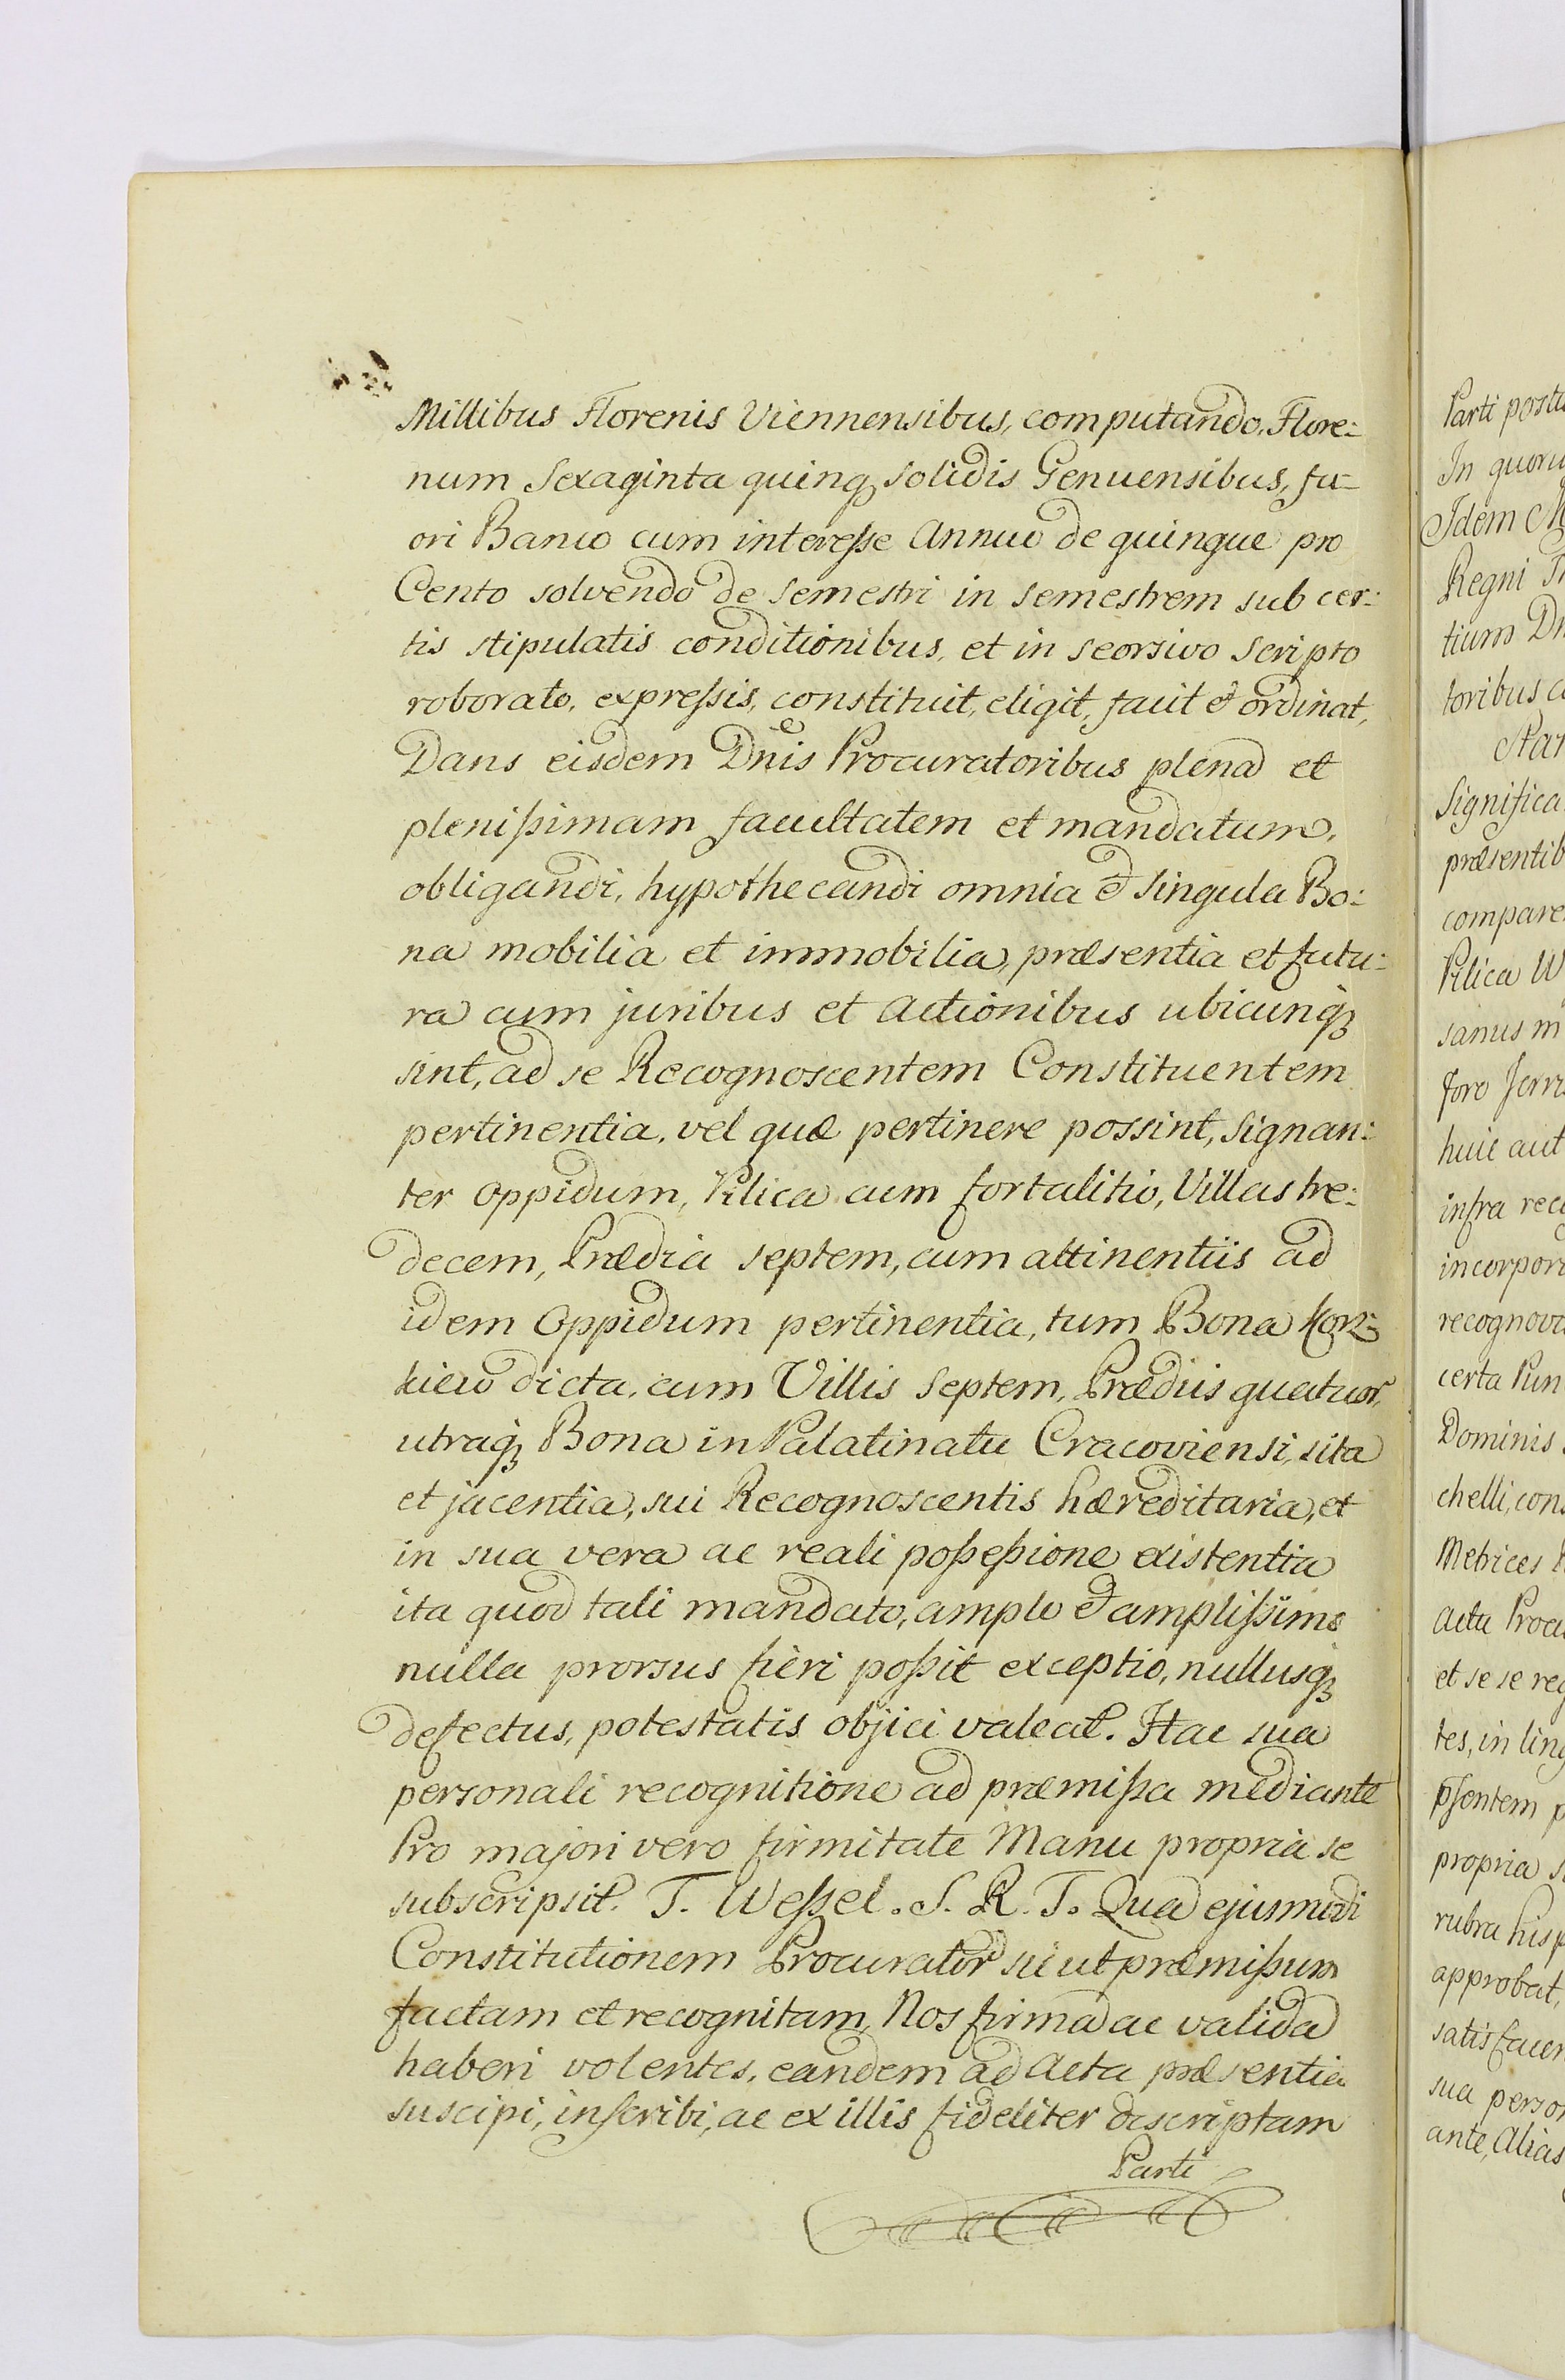 Millibus Florenis Viennensibus, computando, Flore:
num Sexaginta quinq3 solidis Genuensibus, fu=
ori Banco cum interesse Annuo de quinque pro
Cento solvendo de semestri in semestrem sub cer:
tis stipulatis conditionibus, et in seorsivo Scripto
roborato, expressis, constituit, eligit, facit & ordinat,
Dans eisdem Dnis Procuratoribus plena et
plenissimam facultatem et mandatum,
obligandi, hypothecandi omnia & singula Bo:
na mobilia et immobilia, præsentia et futu:
ra cum juribus et actionibus ubicunq3
sint, ad se Recognoscentem Constituentem
pertinentia, vel quæ pertinere possint, signan:
ter Oppidum, Pilica cum fortalitio, Villas tre:
decem, Prædia septem, cum attinentiis ad
idem Oppidum pertinentia, tum Bona Korz=
kiew dicta, cum Villis Septem, Prædiis quatuor,
utraq3 Bona in Palatinatu Cracoviensi, sita
et jacentia, sui Recognoscentis hæreditaria, et
in sua vera ac reali possessione existentia
ita quod tali mandato, amplo & amplissimo
nulla prorsus fieri possit exceptio, nullusq3
defectus, potestatis objici valeat. Hac sua
personali recognitione ad præmissa mediante
Pro majori vero firmitate Manu propria se
subscripsit. T. Wessel. S. R. T. Qua ejusmodi
Constitutionem Procurator sicut præmissum
factam et recognitam, Nos firma ac valida
haberi volentes, eandem ad Acta præsentia
suscipi, inscribi, ac ex illis fideliter descriptam
Parti
Parti
In
Idem
Regni
tium
toribus
Significa
præsentib
compare
Pilica W
sanus m
foro
huic
infra
incorpor
recognov
certa
Dominis
chelli, con
Metrices
Acta
et se se
tes, in
propria
rubra
approbat,
satisfacer
sua
ante, Alias